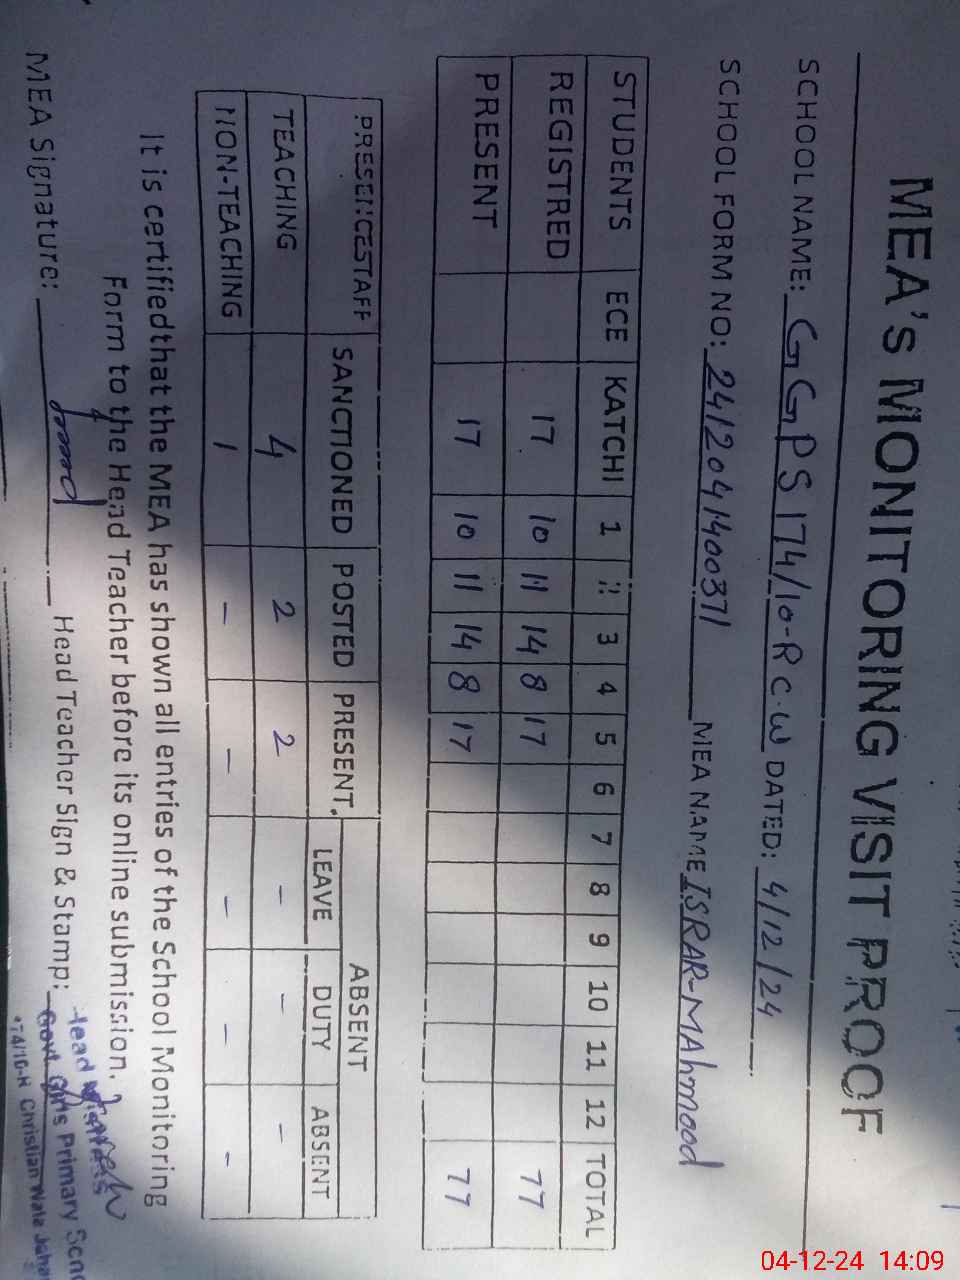 MEA's MONITORING VISIT PROOF
SCHOOL NAME: GGPS 174/10-R C.W DATED: 4/12/24
SCHOOL FORM NO: 241204140037/ MEA NAME ISRAR-MAhmood
STUDENTS ECE KATCHI 1 2 3 4 5 6 7 8 9 10 11 12 TOTAL
REGISTRED 17 10 11 14 8 17 77
PRESENT 17 10 11 14 8 17 77
PRESENCESTAFF SANCTIONED POSTED PRESENT ABSENT
LEAVE DUTY ABSENT
TEACHING 4 2 2 - - -
NON-TEACHING 1 - - - - -
It is certified that the MEA has shown all entries of the School Monitoring
Form to the Head Teacher before its online submission.
MEA Signature: Head Teacher Sign & Stamp:
Head Mistress
Govt. Girls Primary
174/10-R Christian Wala
04-12-24 14:09